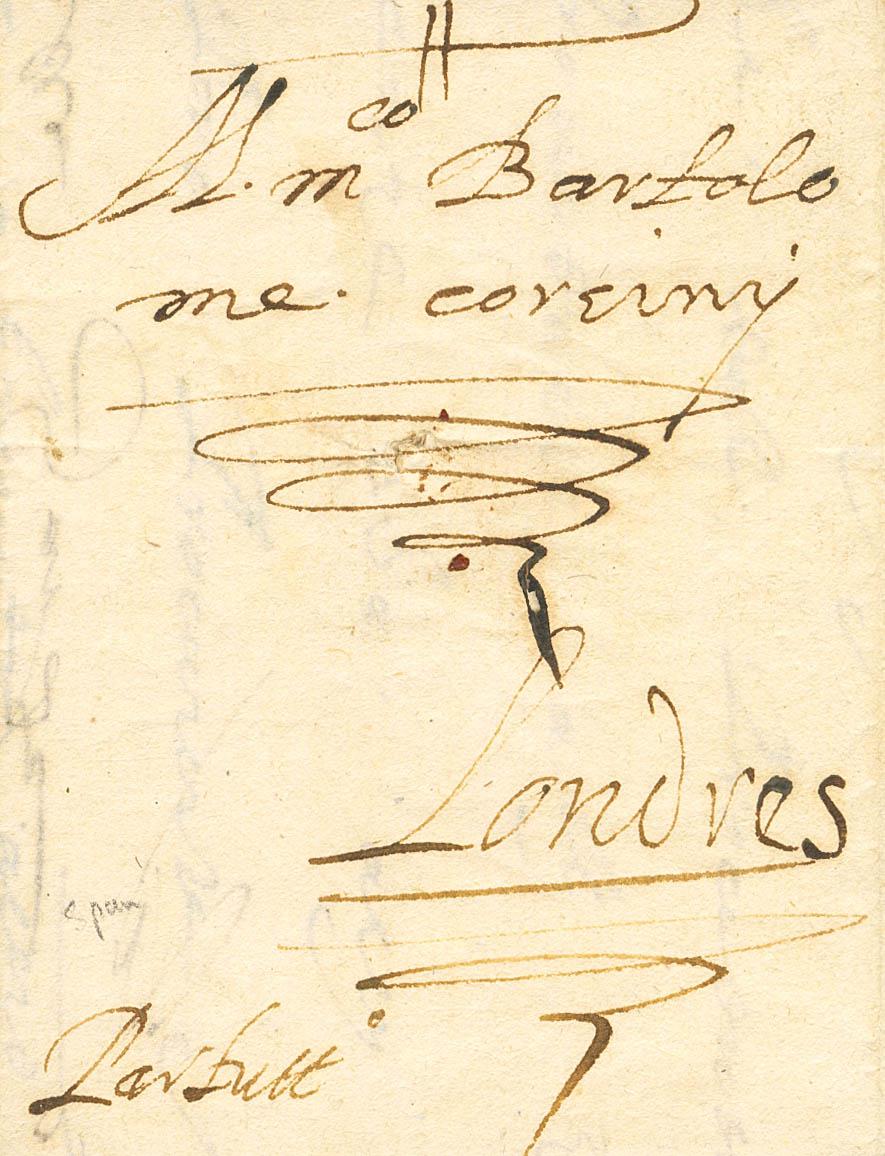 Al. m^co Bartolo
me. corsiny
Londres
Spain
Partutt^o